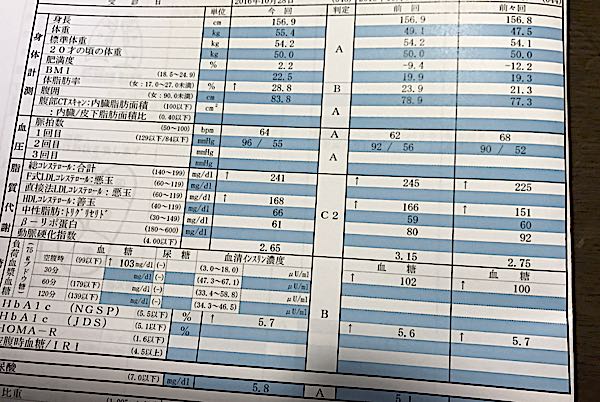 受診日 2016年10月28日
単位 今回 判定 前回 前々回
身体計測
身長 cm 156.9 A 156.9 156.8
体重 kg 55.4 49.1 47.5
標準体重 kg 54.2 54.2 54.1
20才の頃の体重 kg 50.0 50.0 50.0
肥満度 % 2.2 -9.4 -12.2
BMI (18.5~24.9) 22.5 19.9 19.3
体脂肪率 (女:17.0~27.0未満) % ↑ 28.8 23.9 21.3
腹囲 (女:90.0未満) cm 83.8 78.9 77.3
腹部CTスキャン:内臓脂肪面積 (100以下) cm
:内臓/皮下脂肪面積比 (0.40以下)
血圧
脈拍数 (50~100) bpm 64 A 62 68
1回目 (129以下/84以下) mmHg 96 / 55 A 92 / 56 90 / 52
2回目 mmHg
3回目 mmHg
脂質代謝
総コレステロール:合計 (140~199) mg/dl ↑ 241 C2 ↑ 245 ↑ 225
F式LDLコレステロール:悪玉 (60~119) mg/dl
直接法LDLコレステロール:悪玉 (60~119) mg/dl ↑ 168 ↑ 166 ↑ 151
HDLコレステロール:善玉 (40~119) mg/dl 66 59 60
中性脂肪:トリグリセリド (30~149) mg/dl 61 80 92
β-リポ蛋白 (180~600) mg/dl
動脈硬化指数 (4.00以下) 2.65 3.15 2.75
血糖 尿糖 血清インスリン濃度 血糖 血糖
空腹時 (99以下) ↑ 103 mg/dl (-) (3.0~18.0) μU/ml B ↑ 102 ↑ 100
30分 mg/dl (-) (47.3~67.1) μU/ml
60分 (179以下) mg/dl (-) (33.4~58.8) μU/ml
120分 (139以下) mg/dl (-) (34.3~46.5) μU/ml
HbA1c (NGSP) (5.5以下) % ↑ 5.7 ↑ 5.6 ↑ 5.7
HbA1c (JDS) (5.1以下) %
HOMA-R (1.6以下)
空腹時血糖/IRI (4.5以上)
尿酸 (7.0以下) mg/dl 5.8 A 5.1
比重